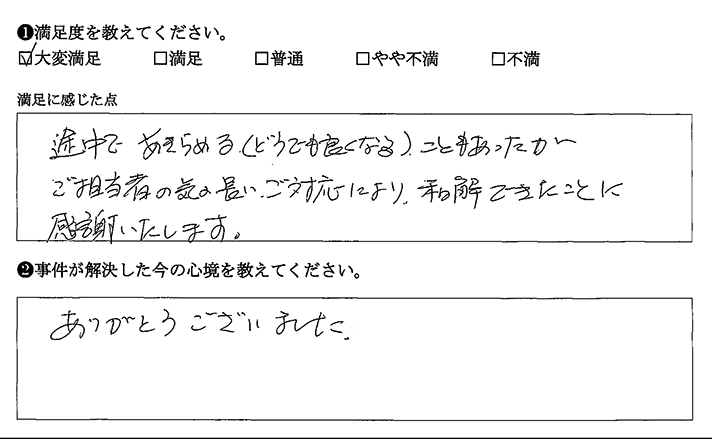 ❶満足度を教えてください。
☑大変満足 □満足 □普通 □やや不満 □不満
満足に感じた点
途中で あきらめる(どうでも良くなる)こともあったが
ご担当者の気の長い、ご対応により、和解できたことに
感謝いたします。
❷事件が解決した今の心境を教えてください。
ありがとうございました。